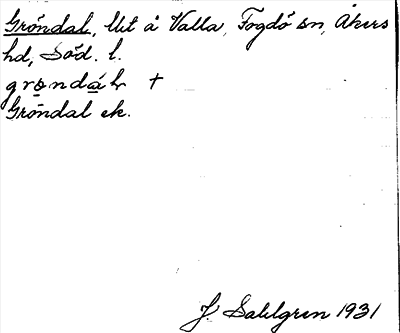 Gröndal, lht å Valla, Fogdö sn, Åkers
hd, Söd. l.
gröndál +
Gröndal ek.
J. Sahlgren 1931